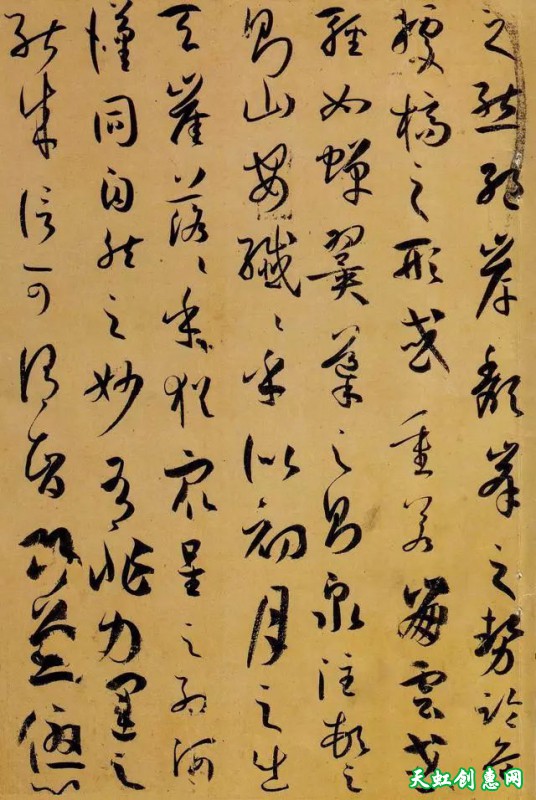 之態絕岸頹峯之勢臨危
據槁之形或重若崩雲或
輕如蟬翼導之則泉注頓之
則山安纖〻乎似初月之出
天崖落〻乎猶眾星之列河
漢同自然之妙有非力運之
能成信可謂智巧兼優心
天虹创惠网